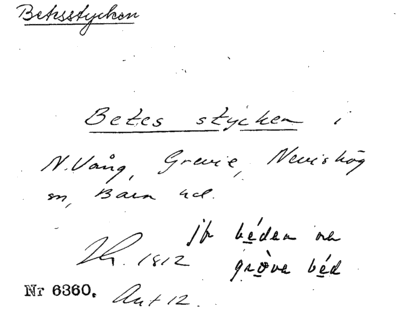 Betesstycken
Betes stycken i
N.Vång, Grevie, Nevishög
m, Bara hd.
jfr béden
Th. 1812 gròva béd
Nr 6360. Ant 12.